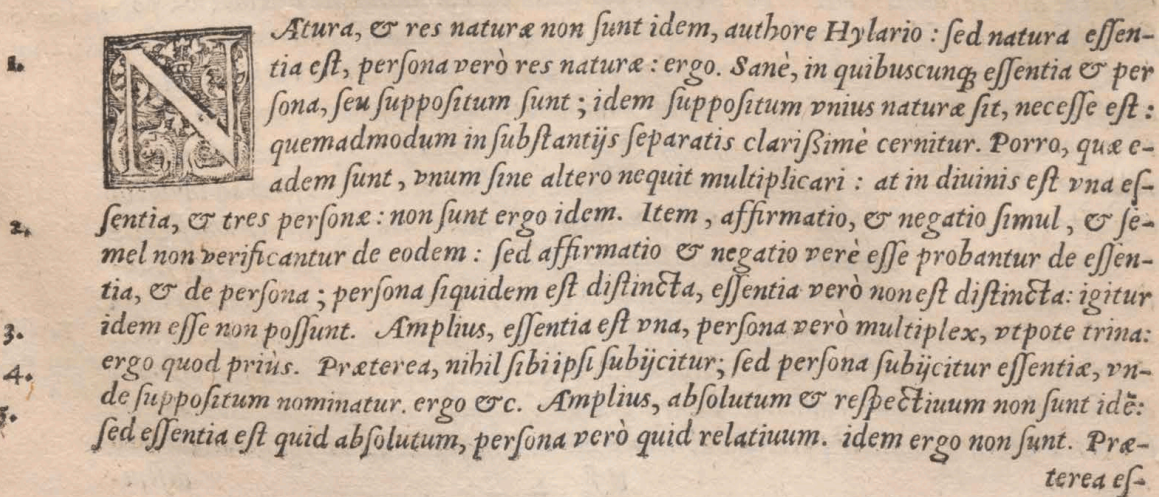 NAtura, & res naturæ non ſunt idem, authore Hylario : ſed natura eſſen-
1. tia eſt, perſona verò res naturæ : ergo. Sanè, in quibuscunq; eſſentia & per
ſona, ſeu ſuppoſitum ſunt ; idem ſuppoſitum vnius naturæ ſit, neceſſe eſt :
quemadmodum in ſubſtantijs ſeparatis clariſſimè cernitur. Porro, quæ e-
adem ſunt, vnum ſine altero nequit multiplicari : at in diuinis eſt vna eſ-
2. ſentia, & tres perſonæ : non ſunt ergo idem. Item, affirmatio, & negatio ſimul, & ſe-
mel non verificantur de eodem : ſed affirmatio & negatio verè eſſe probantur de eſſen-
tia, & de perſona ; perſona ſiquidem eſt diſtincta, eſſentia verò non eſt diſtincta: igitur
3. idem eſſe non poſſunt. Amplius, eſſentia eſt vna, perſona verò multiplex, vtpote trina:
4. ergo quod priùs. Præterea, nihil ſibiipſi ſubijcitur; ſed perſona ſubijcitur eſſentiæ, vn-
5. de ſuppoſitum nominatur. ergo &c. Amplius, abſolutum & reſpectiuum non ſunt idē:
ſed eſſentia eſt quid abſolutum, perſona verò quid relatiuum. idem ergo non ſunt. Præ-
terea eſ-